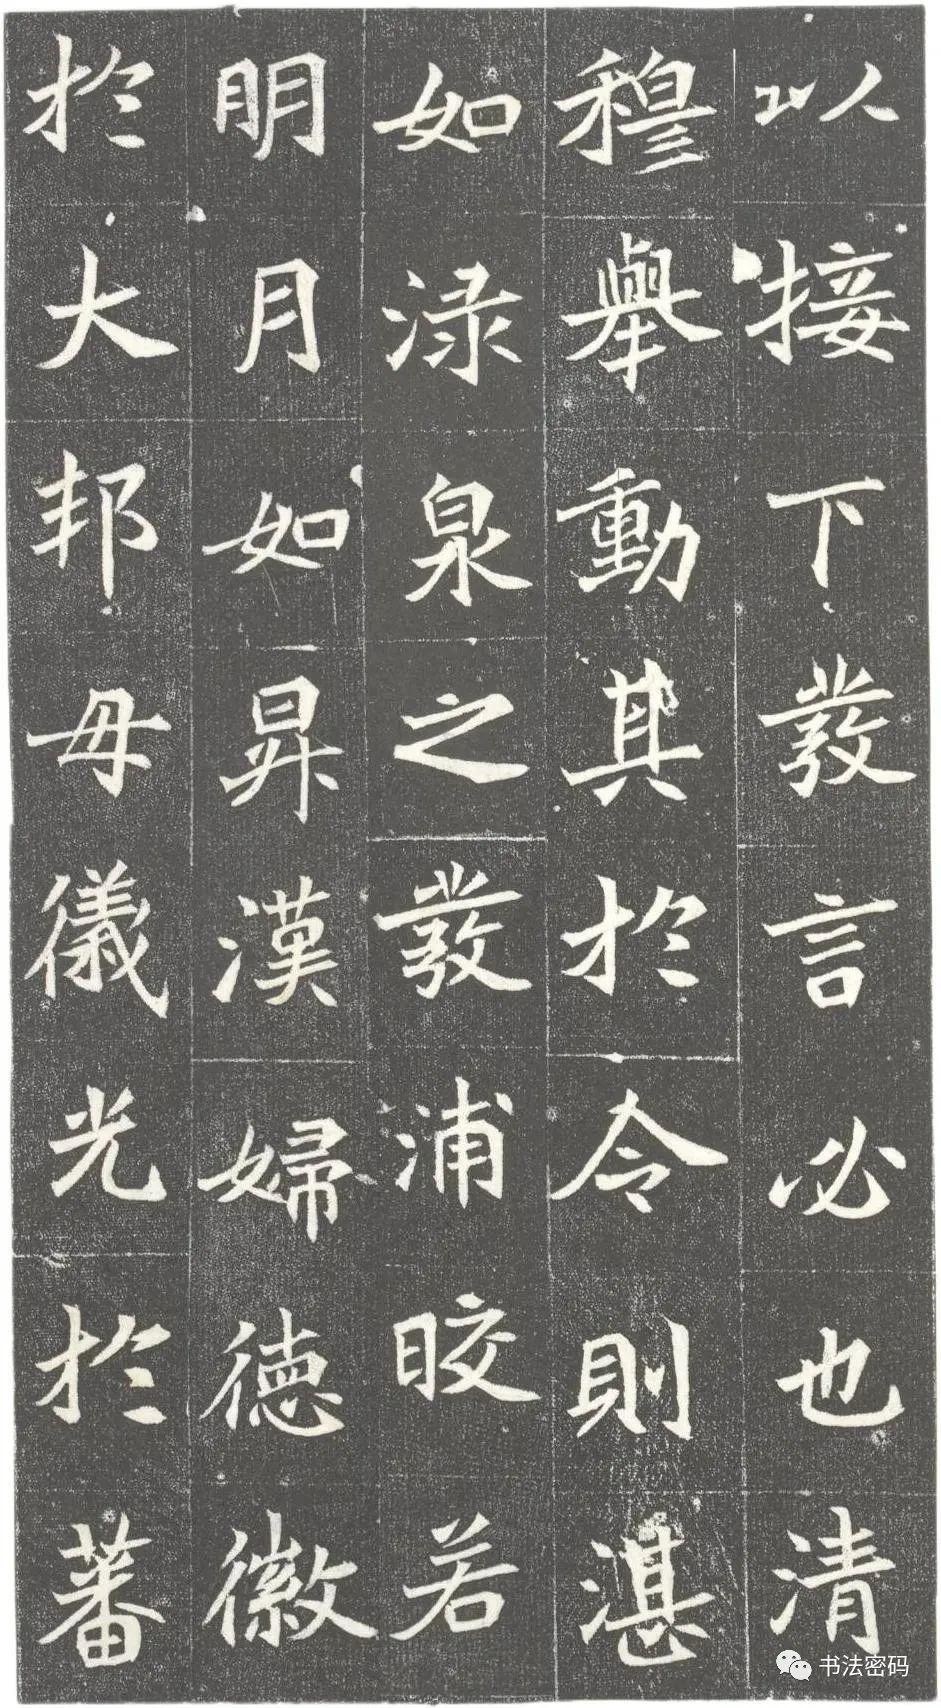 以接下發言必也清
穆舉動其於令則湛
如渌泉之發浦晈若
明月如昇漢婦德徽
於大邦母儀光於蕃
书法密码